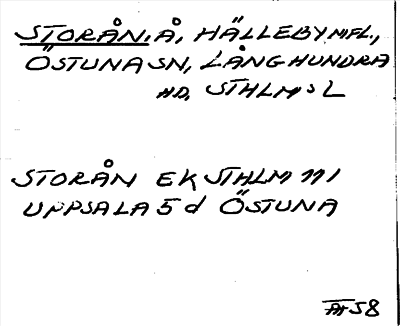 STORÅN, Å, HÄLLEBY M.FL.,
ÖSTUNA SN, LÅNGHUNDRA
HD, STHLMS L
STORÅN EK STHLM 111
UPPSALA 5 d ÖSTUNA
58